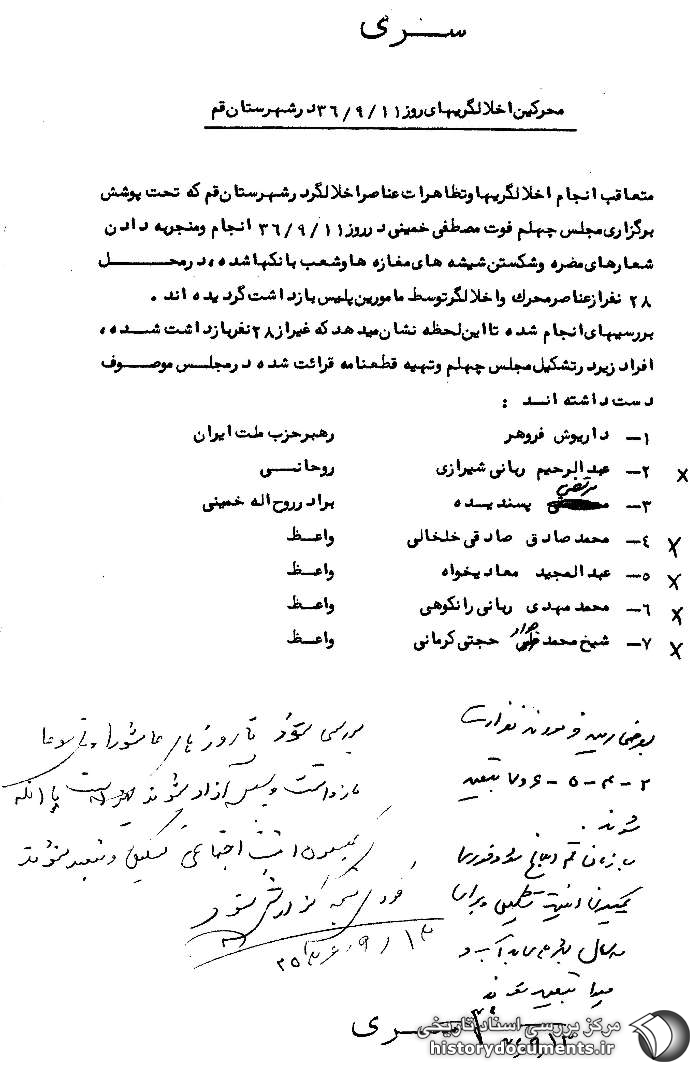 سری
محرکین اخلالگریهای روز ۳۶/۹/۱۱ در شهرستان قم
متعاقب انجام اخلالگریها و تظاهرات عناصر اخلالگر در شهرستان قم که تحت پوشش
برگزاری مجلس چهلم فوت مصطفی خمینی در روز ۳۶/۹/۱۱ انجام و منجر به دادن
شعارهای مضره و شکستن شیشه های مغازه ها و شعب بانکها شده، در محل
۲۸ نفر از عناصر محرک و اخلالگر توسط مامورین پلیس بازداشت گردیده اند .
بررسیهای انجام شده تا این لحظه نشان میدهد که غیر از ۲۸ نفر بازداشت شده،
افراد زیر در تشکیل مجلس چهلم و تهیه قطعنامه قرائت شده در مجلس موصوف
دست داشته اند :
۱- داریوش فروهر رهبر حزب ملت ایران
x ۲- عبدالرحیم ربانی شیرازی روحانی
مرتضی
۳- پسندیده برادر روح اله خمینی
x ۴- محمد صادق صادقی خلخالی واعظ
x ۵- عبدالمجید معادیخواه واعظ
x ۶- محمد مهدی ربانی رانکوهی واعظ
جواد
x ۷- شیخ محمد حجتی کرمانی واعظ
بررسی شود تا روزهای عاشورا و تاسوعا
بازداشت و سپس آزاد شوند یا آنکه
کمیسیون امنیت اجتماعی تشکیل و تبعید شوند
نتیجه گزارش شود
۲۵۳۶/۹/۱۳
فرمودند نفرات
۲-۴-۵-۶ و ۷ تبعید
شوند .
قم ابلاغ شود فوری
کمیسیون امنیت تشکیل و برای
سه سال
تبعید شوند
۳۶/۹/۱۳
سری
مرکز بررسی اسناد تاریخی
historydocuments.ir